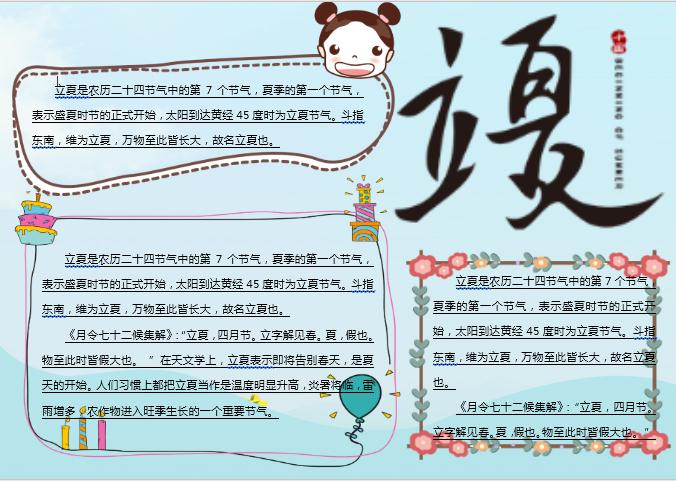 立夏是农历二十四节气中的第 7 个节气，夏季的第一个节气，
表示盛夏时节的正式开始，太阳到达黄经 45 度时为立夏节气。斗指
东南，维为立夏，万物至此皆长大，故名立夏也。
立夏
立夏是农历二十四节气中的第 7 个节气，夏季的第一个节气，
表示盛夏时节的正式开始，太阳到达黄经 45 度时为立夏节气。斗指
东南，维为立夏，万物至此皆长大，故名立夏也。
《月令七十二候集解》：“立夏，四月节。立字解见春。夏，假也。
物至此时皆假大也。 ” 在天文学上，立夏表示即将告别春天，是夏
天的开始。人们习惯上都把立夏当作是温度明显升高，炎暑将临，雷
雨增多，农作物进入旺季生长的一个重要节气。
立夏是农历二十四节气中的第 7 个节气，
夏季的第一个节气，表示盛夏时节的正式开
始，太阳到达黄经 45 度时为立夏节气。斗指
东南，维为立夏，万物至此皆长大，故名立夏
也。
《月令七十二候集解》：“立夏，四月节。
立字解见春。夏，假也。物至此时皆假大也。 ”